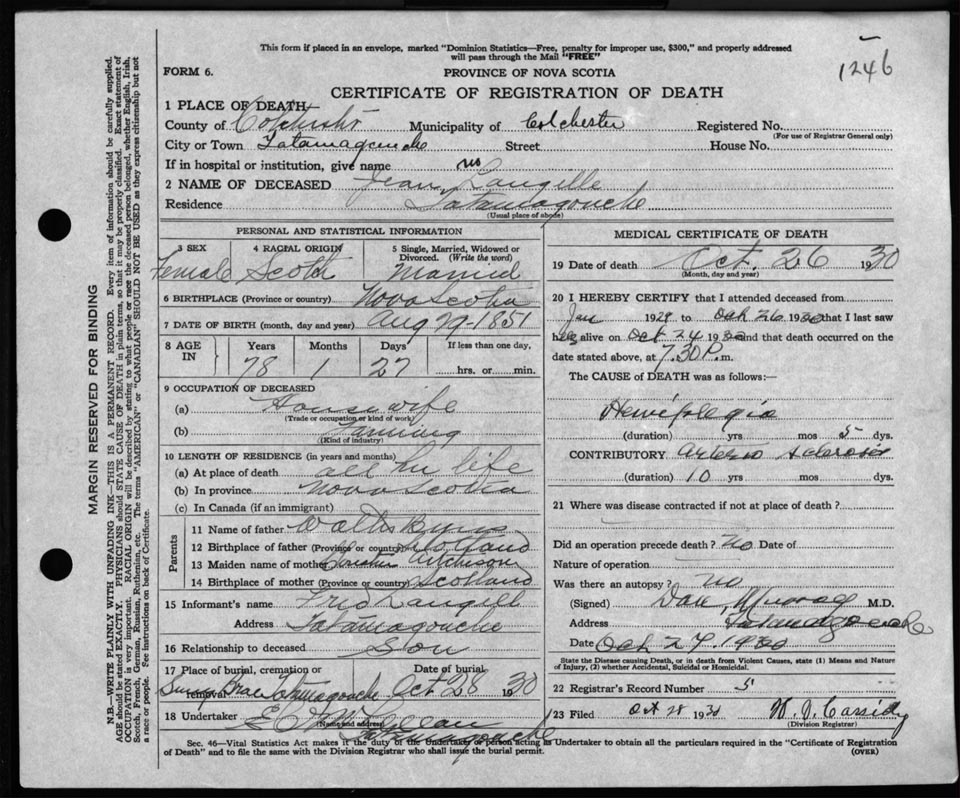 This form if placed in an envelope, marked "Dominion Statistics—Free, penalty for improper use, $300," and properly addressed
will pass through the Mail "FREE"
1246
FORM 6.
PROVINCE OF NOVA SCOTIA
CERTIFICATE OF REGISTRATION OF DEATH
MARGIN RESERVED FOR BINDING
N.B.—WRITE PLAINLY WITH UNFADING INK—THIS IS A PERMANENT RECORD. Every item of information should be carefully supplied.
AGE should be stated EXACTLY. PHYSICIANS should STATE CAUSE OF DEATH in plain terms, so that it may be properly classified. Exact statement of
OCCUPATION is very important. RACIAL ORIGIN will be described by stating to what people or race the deceased person belonged, whether English, Irish,
Scotch, French, German, Russian, Ruthenian, etc. The terms "AMERICAN" or "CANADIAN" SHOULD NOT BE USED as they express citizenship but not
a race or people. See instructions on back of Certificate.
1 PLACE OF DEATH
County of Colchester Municipality of Colchester Registered No.
(For use of Registrar General only)
City or Town Tatamagouche Street House No.
If in hospital or institution, give name no
2 NAME OF DECEASED Jean Langille
Residence Tatamagouche
(Usual place of abode)
PERSONAL AND STATISTICAL INFORMATION
3 SEX 4 RACIAL ORIGIN 5 Single, Married, Widowed or
Divorced. (Write the word)
Female Scotch Married
6 BIRTHPLACE (Province or country) Nova Scotia
7 DATE OF BIRTH (month, day and year) Aug 29-1851
8 AGE IN Years Months Days If less than one day,
78 1 27 hrs. or min.
9 OCCUPATION OF DECEASED
(a) House wife
(Trade or occupation or kind of work)
(b) Farming
(Kind of industry)
10 LENGTH OF RESIDENCE (in years and months)
(a) At place of death all her life
(b) In province Nova Scotia
(c) In Canada (if an immigrant)
Parents
11 Name of father Walter
12 Birthplace of father (Province or country) Scotland
13 Maiden name of mother
14 Birthplace of mother (Province or country) Scotland
15 Informant's name Fred Langill
Address Tatamagouche
16 Relationship to deceased Son
17 Place of burial, cremation or removal Date of burial
Tatamagouche Oct 28 1930
18 Undertaker
(Name and address)
Tatamagouche
MEDICAL CERTIFICATE OF DEATH
19 Date of death Oct. 26 1930
(Month, day and year)
20 I HEREBY CERTIFY that I attended deceased from
Jan 1929 to Oct 26 1930 that I last saw
her alive on Oct 24 1930 and that death occurred on the
date stated above, at 7.30 P. m.
The CAUSE of DEATH was as follows:
Hemiplegia
(duration) yrs mos 5 dys.
CONTRIBUTORY Arterio Sclerosis
(duration) 10 yrs mos dys.
21 Where was disease contracted if not at place of death?
Did an operation precede death? no Date of
Nature of operation
Was there an autopsy? no
(Signed) Dan Murray M.D.
Address Tatamagouche
Date Oct 27 1930
State the Disease causing Death, or in death from Violent Causes, state (1) Means and Nature
of Injury, (2) whether Accidental, Suicidal or Homicidal.
22 Registrar's Record Number 5
23 Filed Oct 28 1930 W. J. Cassidy
(Division Registrar)
Sec. 46—Vital Statistics Act makes it the duty of the Undertaker or person acting as Undertaker to obtain all the particulars required in the "Certificate of Registration
of Death" and to file the same with the Division Registrar who shall issue the burial permit. (OVER)